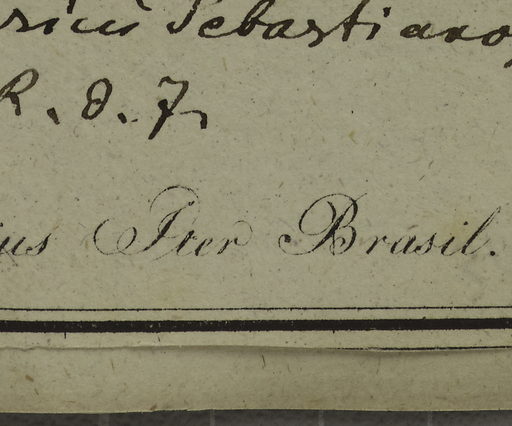 Sebastiano
R. d. J.
ius Iter Brasil.